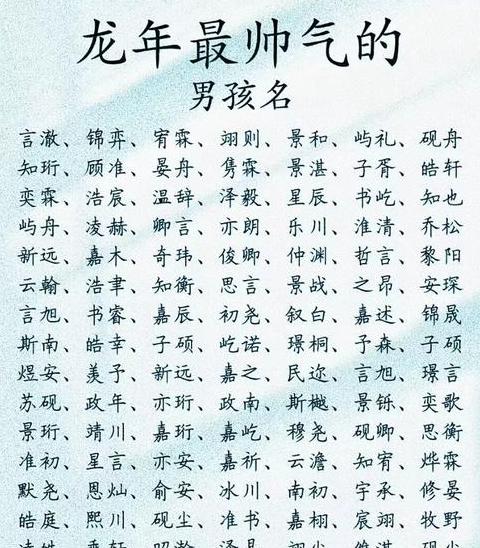 龙年最帅气的
男孩名
言澈、锦弈、宥霖、翊则、景和、屿礼、砚舟
知珩、顾准、晏舟、隽霖、景湛、子胥、皓轩
奕霖、浩宸、温辞、泽毅、星辰、书屹、知也
屿舟、凌赫、卿言、亦朗、乐川、淮清、乔松
新远、嘉木、奇玮、俊卿、仲渊、哲言、黎阳
云翰、浩聿、知衡、思言、景战、之昂、安琛
言旭、书睿、嘉辰、初尧、叙白、嘉述、锦晟
斯南、皓幸、子硕、屹诺、璟桐、予森、子硕
煜安、羡予、新远、嘉之、民迩、言旭、璟言
苏砚、政年、亦珩、政南、斯樾、景铄、奕歌
景珩、靖川、嘉珩、嘉屹、穆尧、砚卿、思衡
淮初、星言、亦安、嘉祈、云澹、知宥、烨霖
默尧、恩灿、俞安、冰川、南初、宇承、修晏
皓庭、熙川、砚尘、淮书、嘉栩、宸翊、牧野